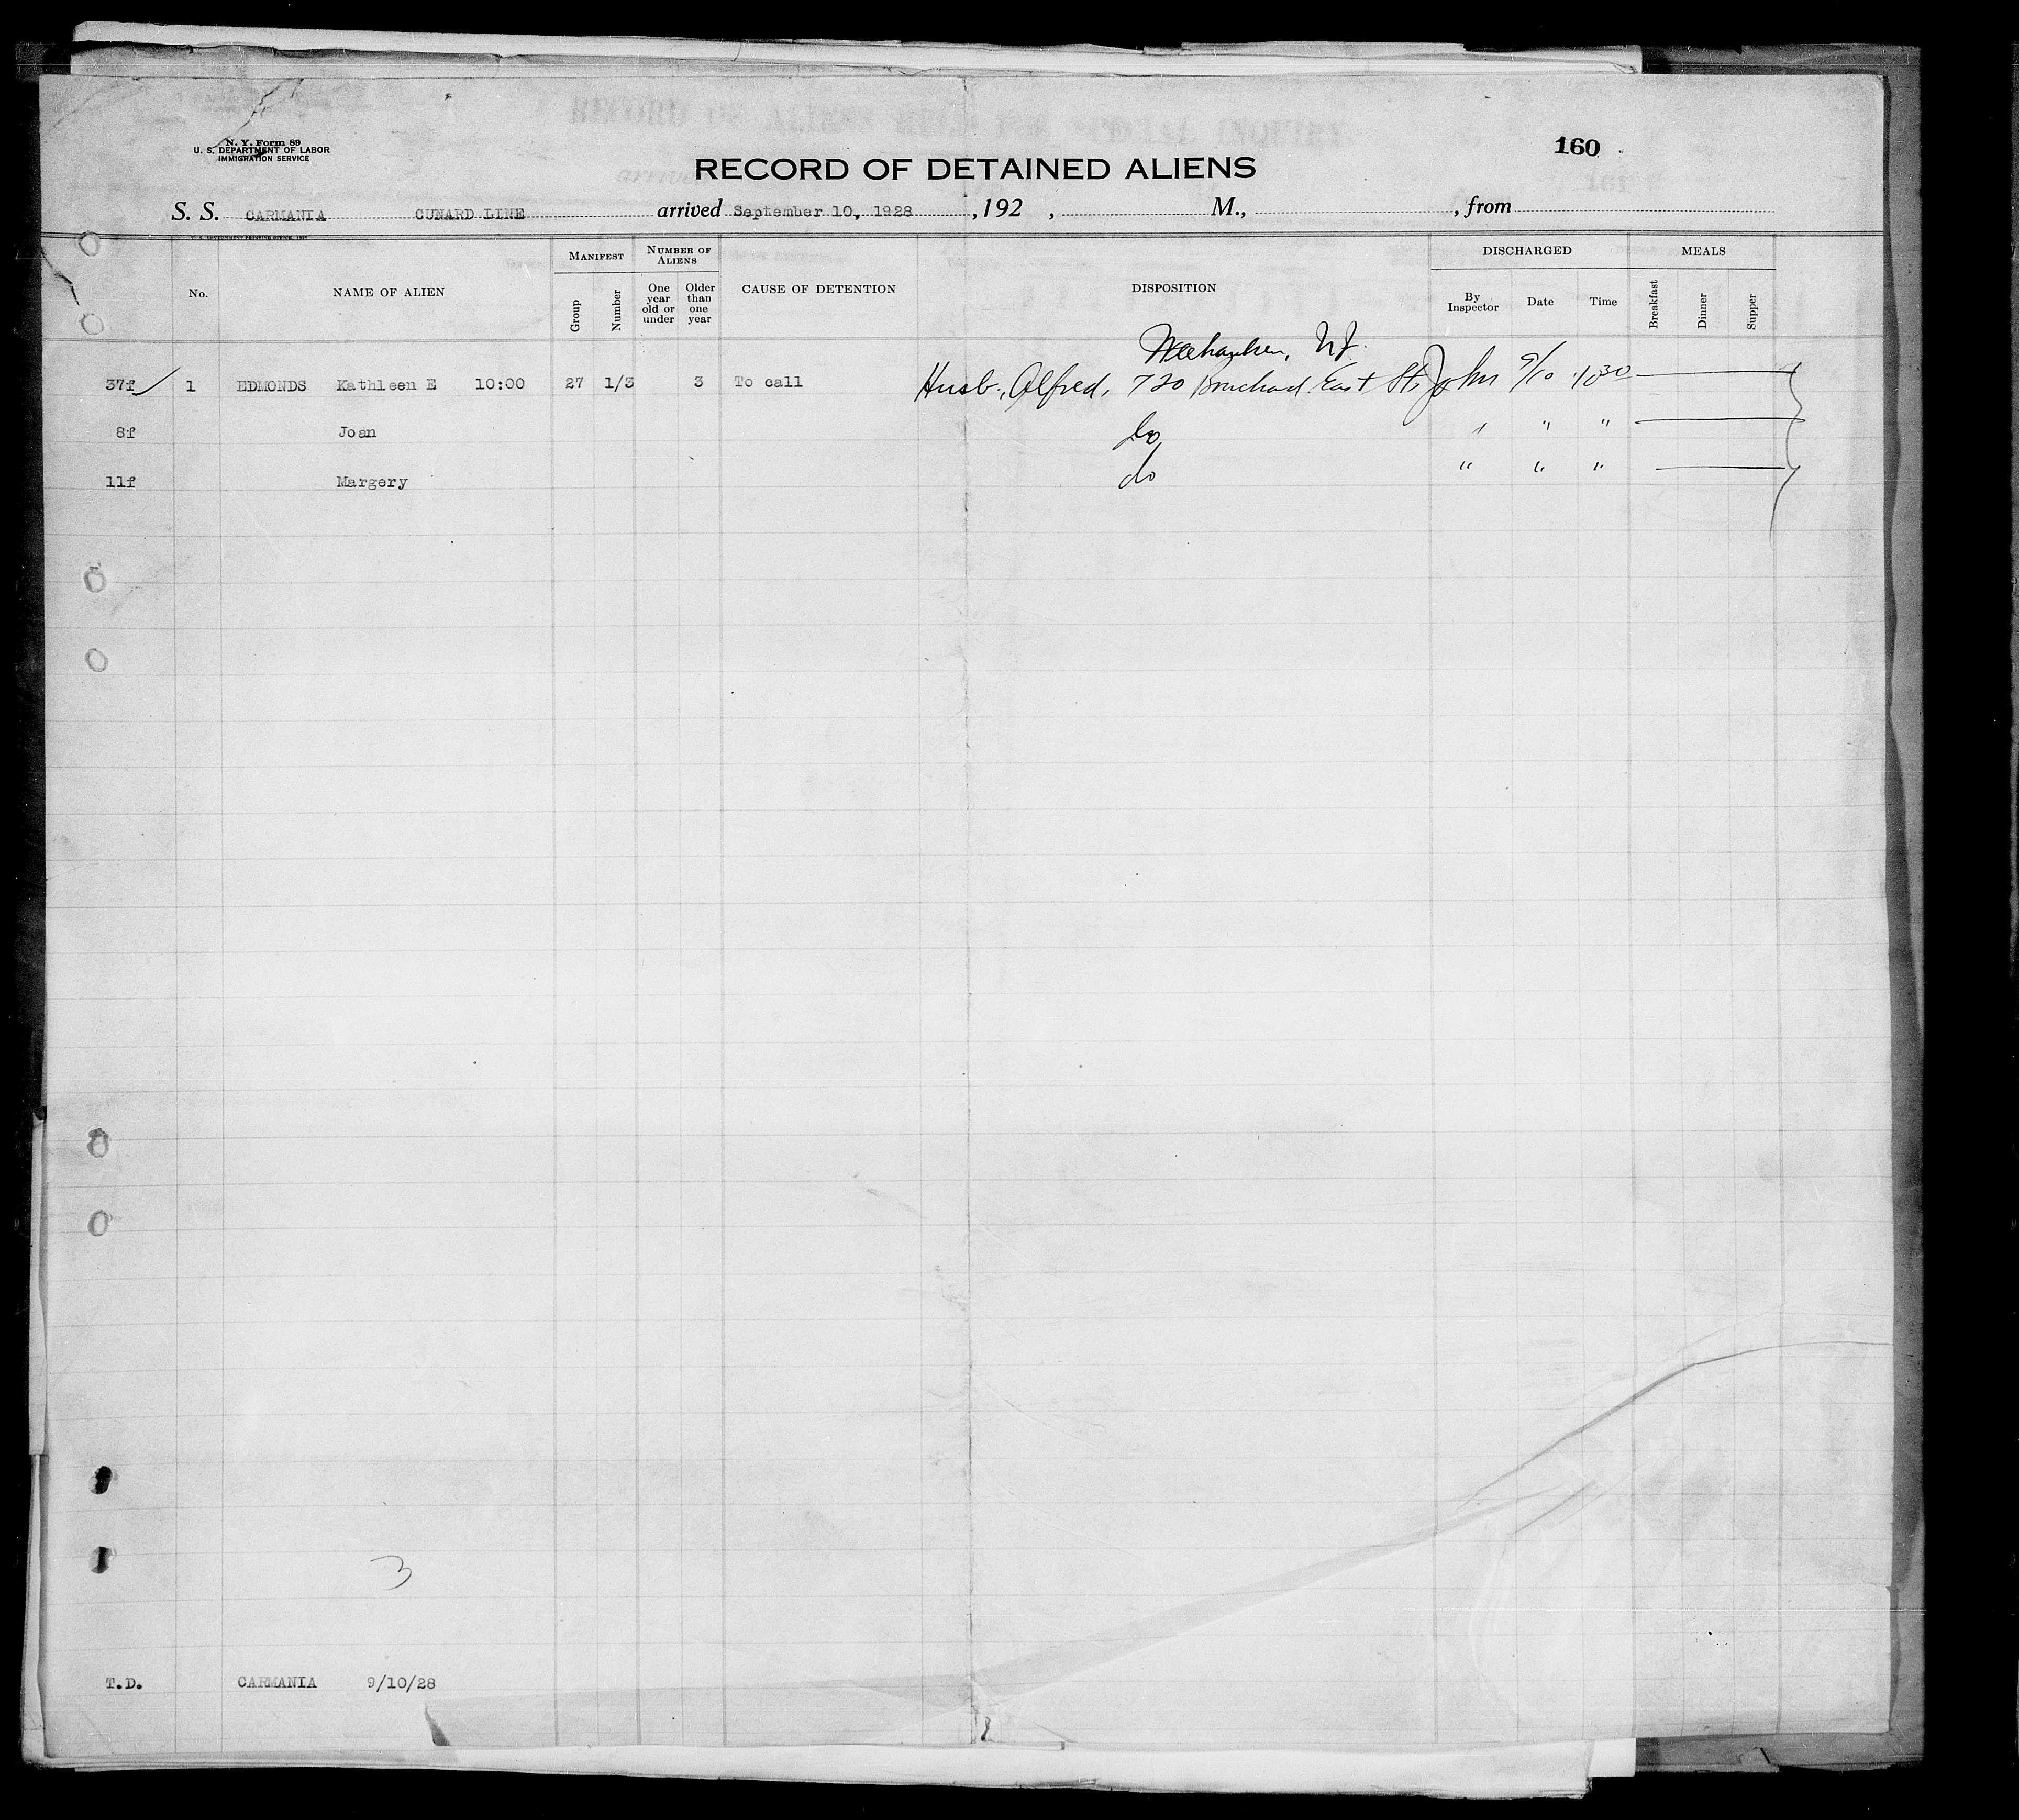 N. Y. Form 89
U. S. DEPARTMENT OF LABOR
IMMIGRATION SERVICE
160
RECORD OF DETAINED ALIENS
S. S. CARMANIA CUNARD LINE arrived September 10, 1928 , 192 , M., , from
MANIFEST NUMBER OF ALIENS DISCHARGED MEALS
No. NAME OF ALIEN Group Number One year old or under Older than one year CAUSE OF DETENTION DISPOSITION By Inspector Date Time Breakfast Dinner Supper
Weehawken, NJ.
37f 1 EDMONDS Kathleen E 10:00 27 1/3 3 To call Husb., Alfred, 720 East St. John 9/10 1030
8f Joan do " " "
11f Margery do " " "
3
T.D. CARMANIA 9/10/28